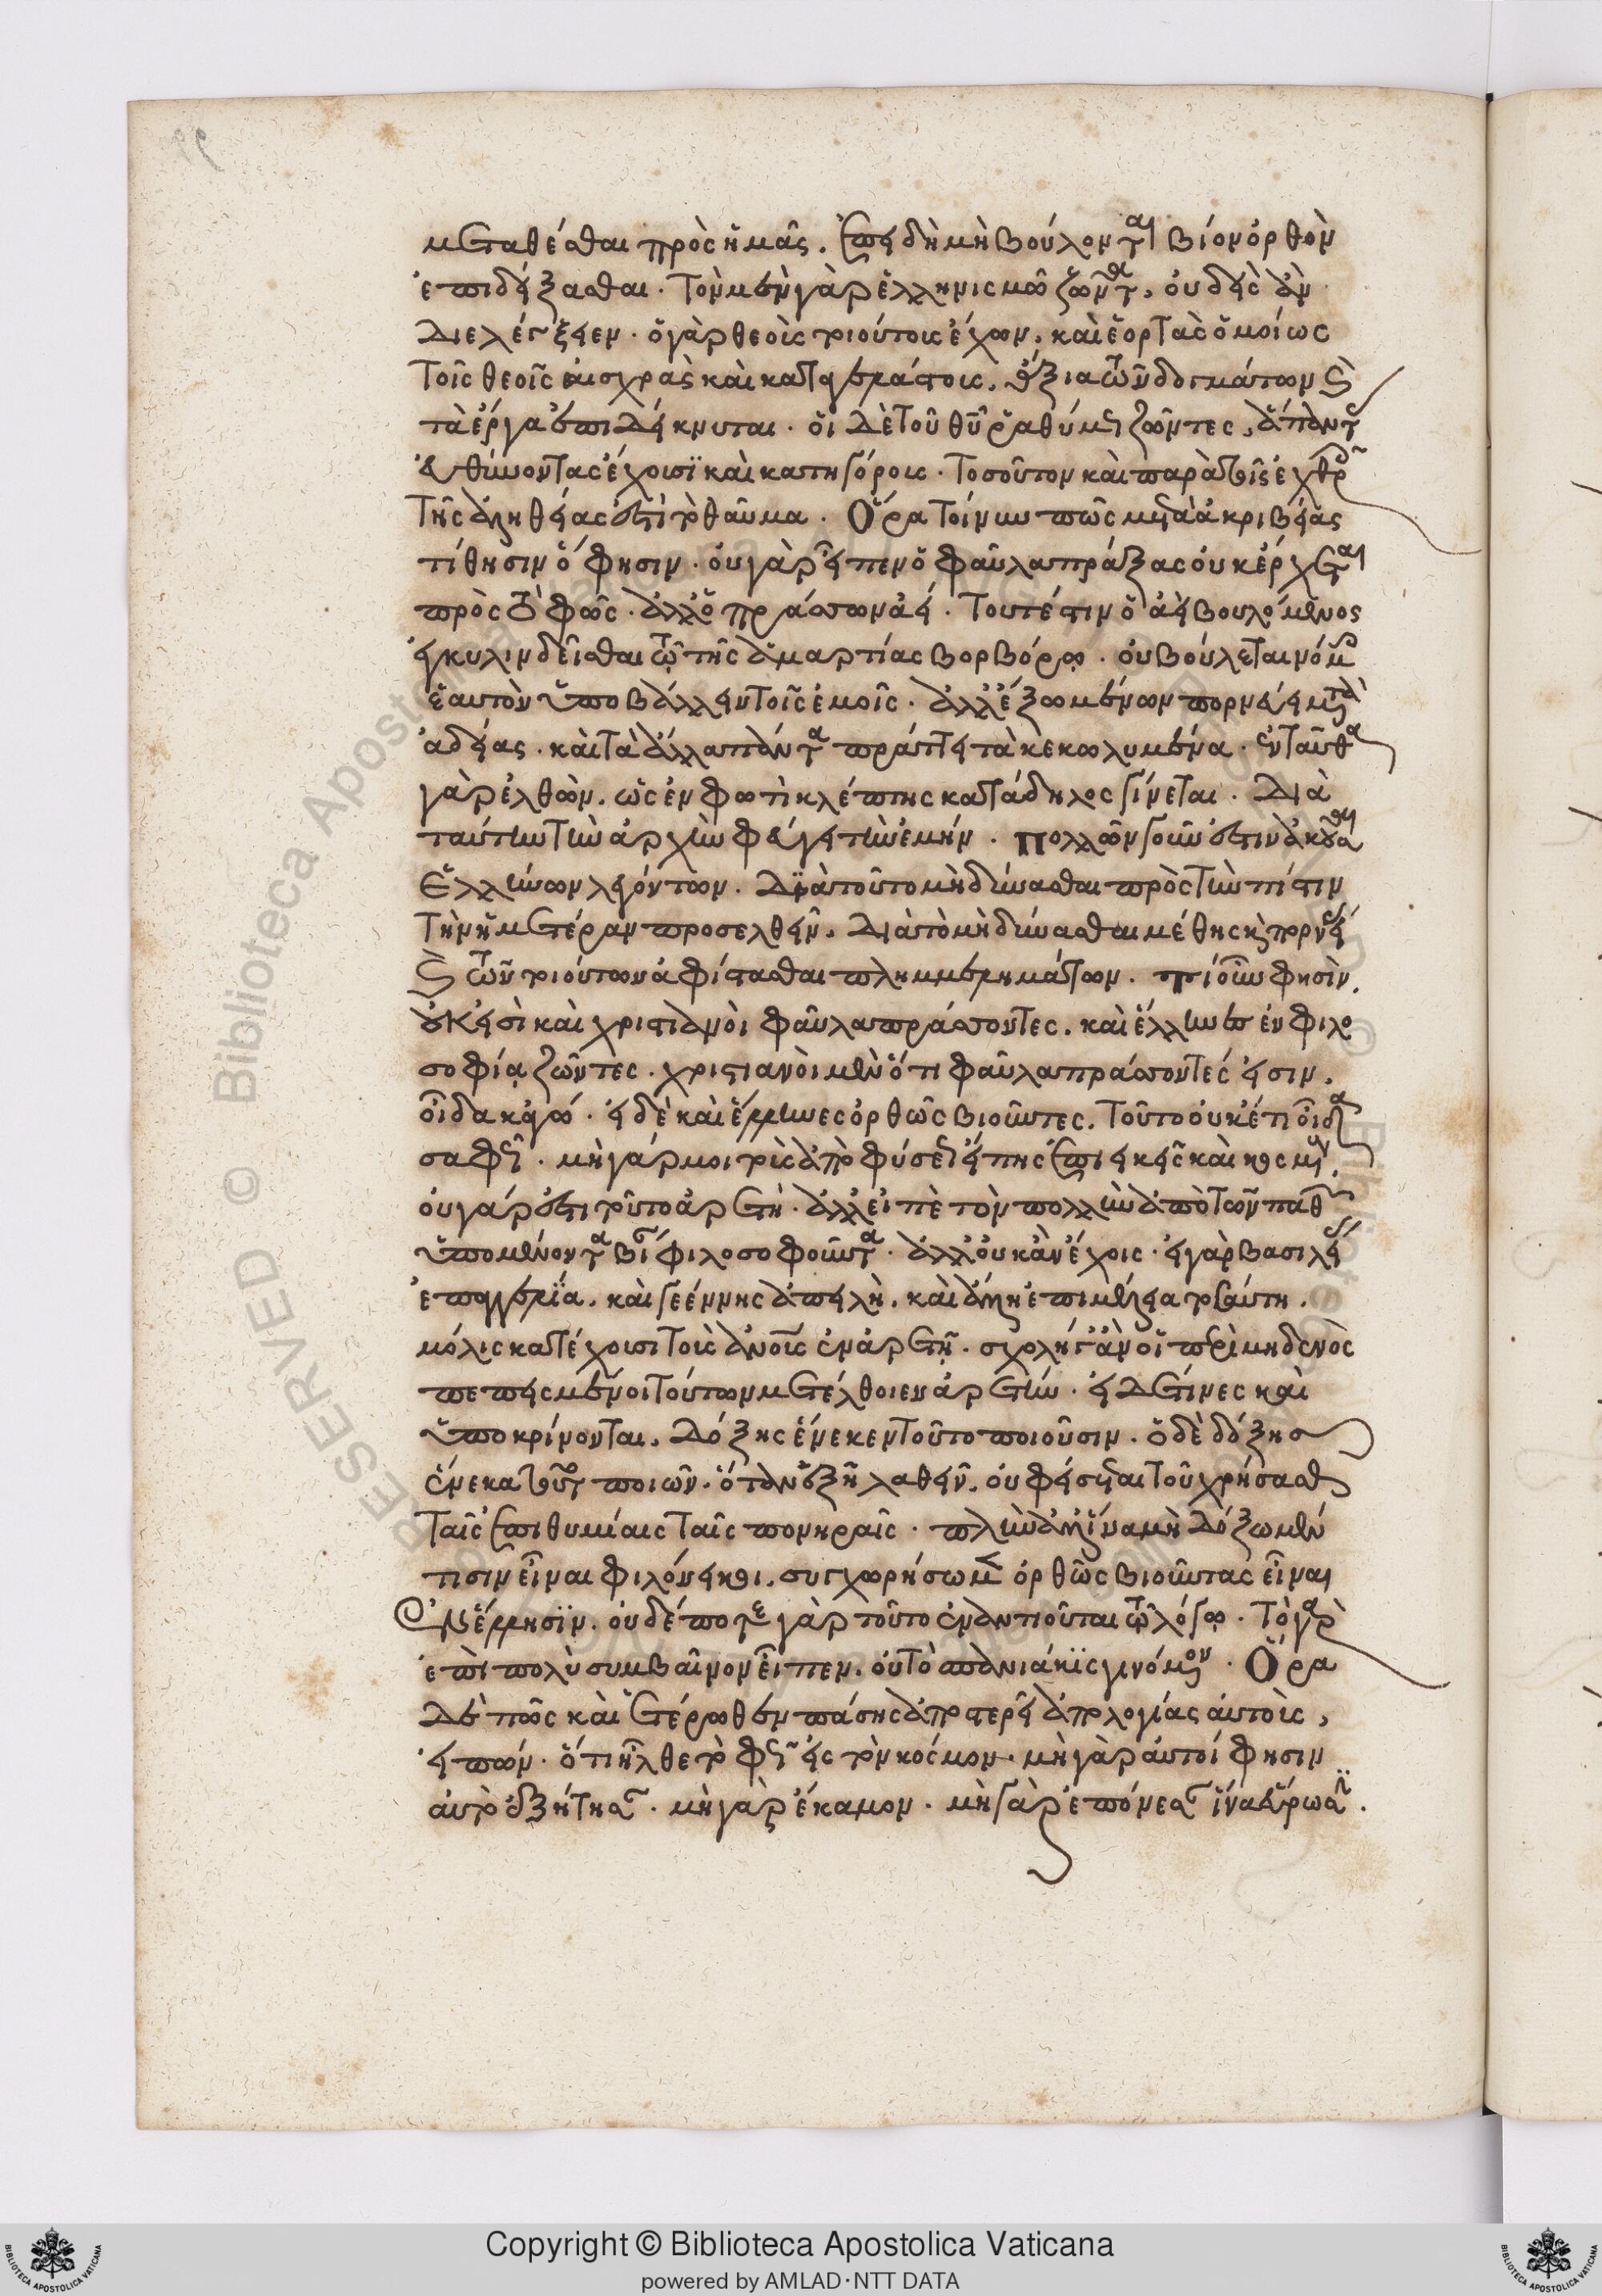 μεταθέσθαι πρὸς ἡμᾶς. ἐπειδὴ μὴ βούλονται βίον ὀρθὸν
ἐπιδείξασθαι. τὸν μὲν γὰρ ἑλληνισμῶ ζῶντα, οὐδεὶς ἂν
διελέγξειεν. ὁ γὰρ θεοῖς τοιούτοις ἔχων, καὶ ἑορτὰς ὁμοίως
τοῖς θεοῖς αἰσχρὰς καὶ καταγελάστοις, ἄξια τῶν δογμάτων καὶ
τὰ ἔργα ἐπιδείκνυται. οἱ δὲ τοῦ θῦ ῥαθύμως ζῶντες, ἅπαντας
εὐθύνοντας ἔχουσι καὶ κατηγόρους. τοσοῦτον καὶ παρὰ τοῖς ἐχθροῖς
τῆς ἀληθείας ἐστὶ τὸ θαῦμα. Ὅρα τοίνυν πῶς μετὰ ἀκριβείας
τίθησιν ὅ φησιν. οὐ γὰρ εἶπεν ὁ φαῦλα πράξας οὐκ ἔρχεται
πρὸς τὸ φῶς. ἀλλ' ὁ πράσσων ἀεί. τουτέστιν ὁ ἀεὶ βουλόμενος
ἐγκυλινδεῖσθαι τῶ τῆς ἁμαρτίας βορβόρῳ. οὐ βούλεται νόμοις
ἑαυτὸν ὑποβάλλειν τοῖς ἐμοῖς. ἀλλ' ἔξω μένων πορνεύει μετὰ
ἀδείας. καὶ τὰ ἄλλα πάντα πράττει τὰ κεκωλυμένα. ἐνταῦθα
γὰρ ἐλθὼν, ὡς ἐν φωτὶ κλέπτης κατάδηλος γίνεται. Διὰ
ταύτην τὴν ἀρχὴν φεύγει τὴν ἐμήν. Πολλῶν γοῦν ἐστιν ἀκοῦσαι
Ἑλλήνων λεγόντων. διὰ τοῦτο μὴ δύνασθαι πρὸς τὴν πίστιν
τὴν ἡμετέραν προσελθεῖν, διὰ τὸ μὴ δύνασθαι μέθης καὶ πορνείας
καὶ τῶν τοιούτων ἀφίστασθαι πλημμελημάτων. τί οὖν φησὶν,
οὐκ εἰσὶ καὶ χριστιανοὶ φαῦλα πράσσοντες, καὶ ἕλληνες ἐν φιλο
σοφίᾳ ζῶντες. χριστιανοὶ μὲν ὅτι φαῦλα πράσσοντές εἰσιν,
οἶδα κἀγώ. εἰ δὲ καὶ ἕλληνες ὀρθῶς βιοῦντες, τοῦτο οὐκέτι οἶδα
σαφῶς. μὴ γάρ μοι τοὺς ἀπὸ φύσεως εἴπης ἐπιεικεῖς καὶ κοσμίους.
οὐ γάρ ἐστι τοῦτο ἀρετή. ἀλλ' εἰπὲ τὸν πολλὴν ἀπὸ τῶν παθῶν
ὑπομένοντα βίαν φιλοσοφοῦντα. ἀλλ' οὐκ ἂν ἔχοις. εἰ γὰρ βασιλείας
ἐπαγγελία, καὶ γεέννης ἀπειλὴ, καὶ ἄλλη ἐπιμέλεια τοσαύτη,
μόλις κατέχουσι τοὺς ἀνοῦς ἐν ἀρετῆ. σχολῆ γ' ἂν οἱ περὶ μηδενὸς
πεπεισμένοι τούτων μετέλθοιεν ἀρετήν. εἰ δέ τινες καὶ
ὑποκρίνονται, δόξης ἕνεκεν τοῦτο ποιοῦσιν. ὁ δὲ δόξης
ἕνεκα τοῦτο ποιῶν. ὅταν ἐξῆ λαθεῖν, οὐ φείσεται τοῦ χρήσασθαι
ταῖς ἐπιθυμίαις ταῖς πονηραῖς. πλὴν ἀλλ' ἵνα μὴ δόξωμέν
τισιν εἶναι φιλόνεικοι, συγχωρήσωμεν ὀρθῶς βιοῦντας εἶναι
ἐν ἕλλησιν. οὐδέποτε γὰρ τοῦτο ἐναντιοῦται τῶ λόγῳ. τὸ γὰρ
ἐπὶ πολὺ συμβαῖνον εἶπεν, οὐ τὸ σπανιάκις γινόμενον. Ὅρα
δὲ πῶς καὶ ἑτέρωθεν πάσης ἀποστερεῖ ἀπολογίας αὐτοὺς,
εἰπών. ὅτι ἦλθε τὸ φῶς εἰς τὸν κόσμον. μὴ γὰρ αὐτοί φησιν
αὐτὸ ἐζήτησαν. μὴ γὰρ ἔκαμον. μὴ γὰρ ἐπόνεσαν ἵνα εὕρωσιν.